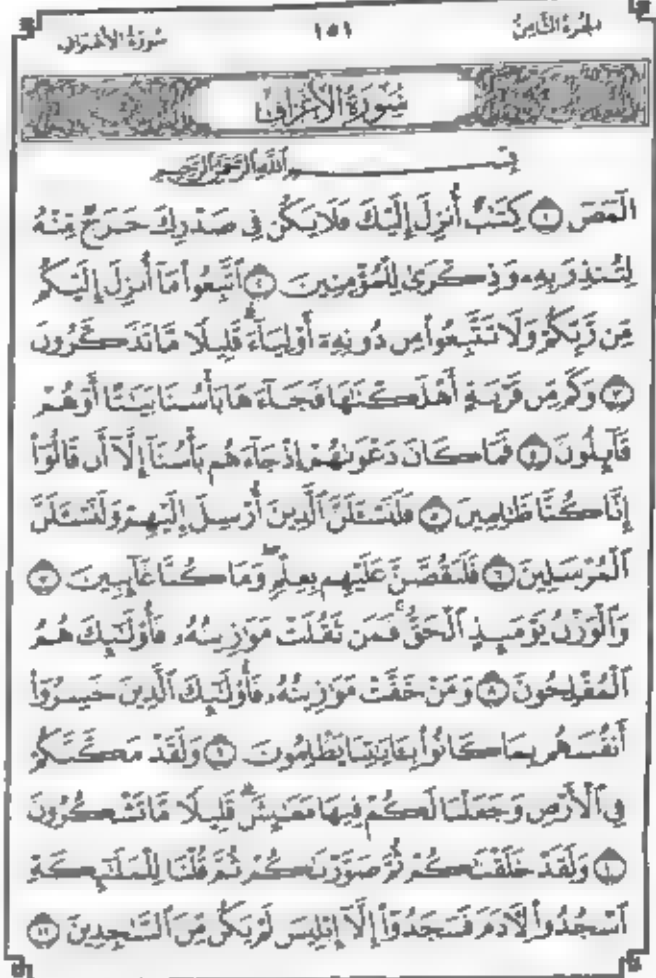 الجزء الثامن ١٥١ سورة الأعراف
سُورَةُ الأَعْرَافِ
بِسْمِ ٱللَّهِ ٱلرَّحْمَٰنِ ٱلرَّحِيمِ
الٓمٓصٓ ١ كِتَٰبٌ أُنزِلَ إِلَيْكَ فَلَا يَكُن فِي صَدْرِكَ حَرَجٌ مِّنْهُ
لِتُنذِرَ بِهِۦ وَذِكْرَىٰ لِلْمُؤْمِنِينَ ٢ ٱتَّبِعُوا۟ مَآ أُنزِلَ إِلَيْكُم
مِّن رَّبِّكُمْ وَلَا تَتَّبِعُوا۟ مِن دُونِهِۦٓ أَوْلِيَآءَ ۗ قَلِيلًا مَّا تَذَكَّرُونَ
٣ وَكَم مِّن قَرْيَةٍ أَهْلَكْنَٰهَا فَجَآءَهَا بَأْسُنَا بَيَٰتًا أَوْ هُمْ
قَآئِلُونَ ٤ فَمَا كَانَ دَعْوَىٰهُمْ إِذْ جَآءَهُم بَأْسُنَآ إِلَّآ أَن قَالُوٓا۟
إِنَّا كُنَّا ظَٰلِمِينَ ٥ فَلَنَسْـَٔلَنَّ ٱلَّذِينَ أُرْسِلَ إِلَيْهِمْ وَلَنَسْـَٔلَنَّ
ٱلْمُرْسَلِينَ ٦ فَلَنَقُصَّنَّ عَلَيْهِم بِعِلْمٍ ۖ وَمَا كُنَّا غَآئِبِينَ ٧
وَٱلْوَزْنُ يَوْمَئِذٍ ٱلْحَقُّ ۚ فَمَن ثَقُلَتْ مَوَٰزِينُهُۥ فَأُو۟لَٰٓئِكَ هُمُ
ٱلْمُفْلِحُونَ ٨ وَمَنْ خَفَّتْ مَوَٰزِينُهُۥ فَأُو۟لَٰٓئِكَ ٱلَّذِينَ خَسِرُوٓا۟
أَنفُسَهُم بِمَا كَانُوا۟ بِـَٔايَٰتِنَا يَظْلِمُونَ ٩ وَلَقَدْ مَكَّنَّٰكُمْ
فِي ٱلْأَرْضِ وَجَعَلْنَا لَكُمْ فِيهَا مَعَٰيِشَ ۗ قَلِيلًا مَّا تَشْكُرُونَ
١٠ وَلَقَدْ خَلَقْنَٰكُمْ ثُمَّ صَوَّرْنَٰكُمْ ثُمَّ قُلْنَا لِلْمَلَٰٓئِكَةِ
ٱسْجُدُوا۟ لِـَٔادَمَ فَسَجَدُوٓا۟ إِلَّآ إِبْلِيسَ لَمْ يَكُن مِّنَ ٱلسَّٰجِدِينَ ١١